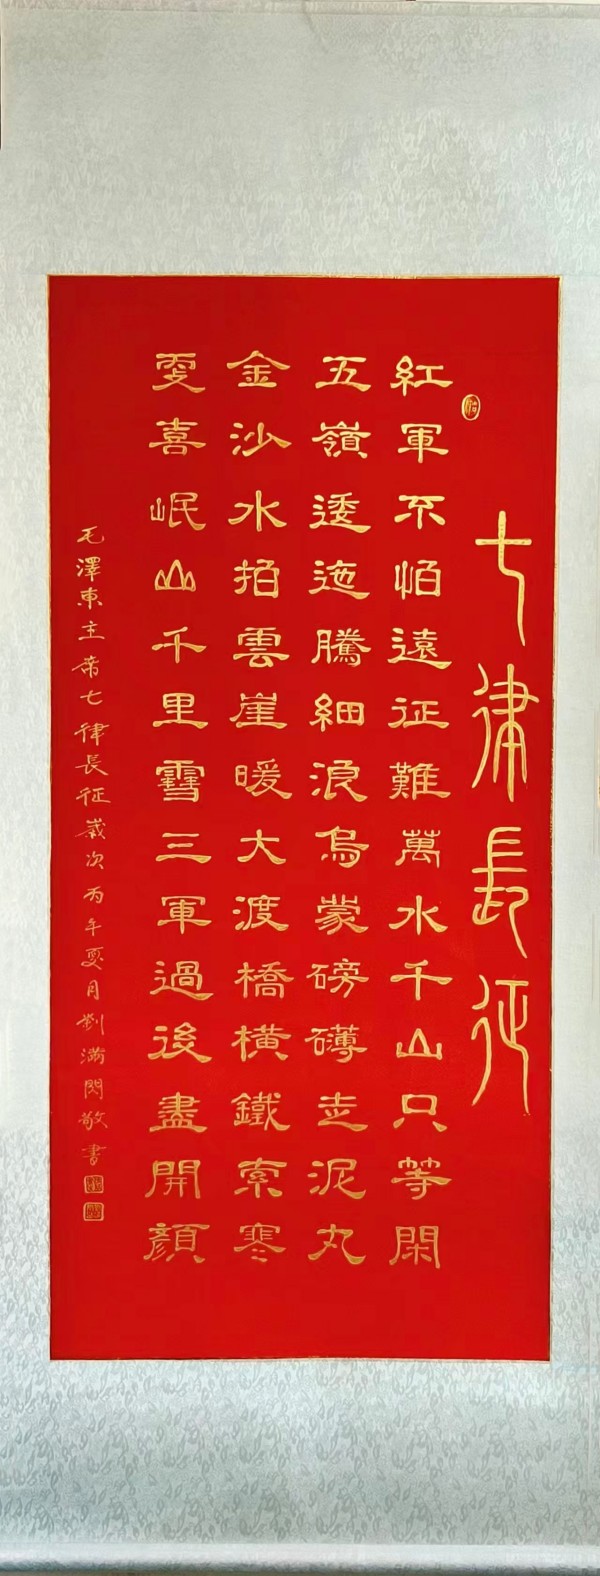 七律長征
紅軍不怕遠征難萬水千山只等閑
五嶺逶迤騰細浪烏蒙磅礴走泥丸
金沙水拍雲崖暖大渡橋橫鐵索寒
更喜岷山千里雪三軍過後盡開顏
毛澤東主席七律長征歲次丙午夏月劉滿閃敬書